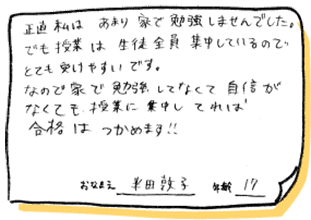 正直私は あまり家で勉強しませんでした。
でも授業は生徒全員集中しているので
とても受けやすいです。
なので家で勉強してなくて自信が
なくても授業に集中してれば
合格はつかめます!!
おなまえ 半田敦子 年齢 17